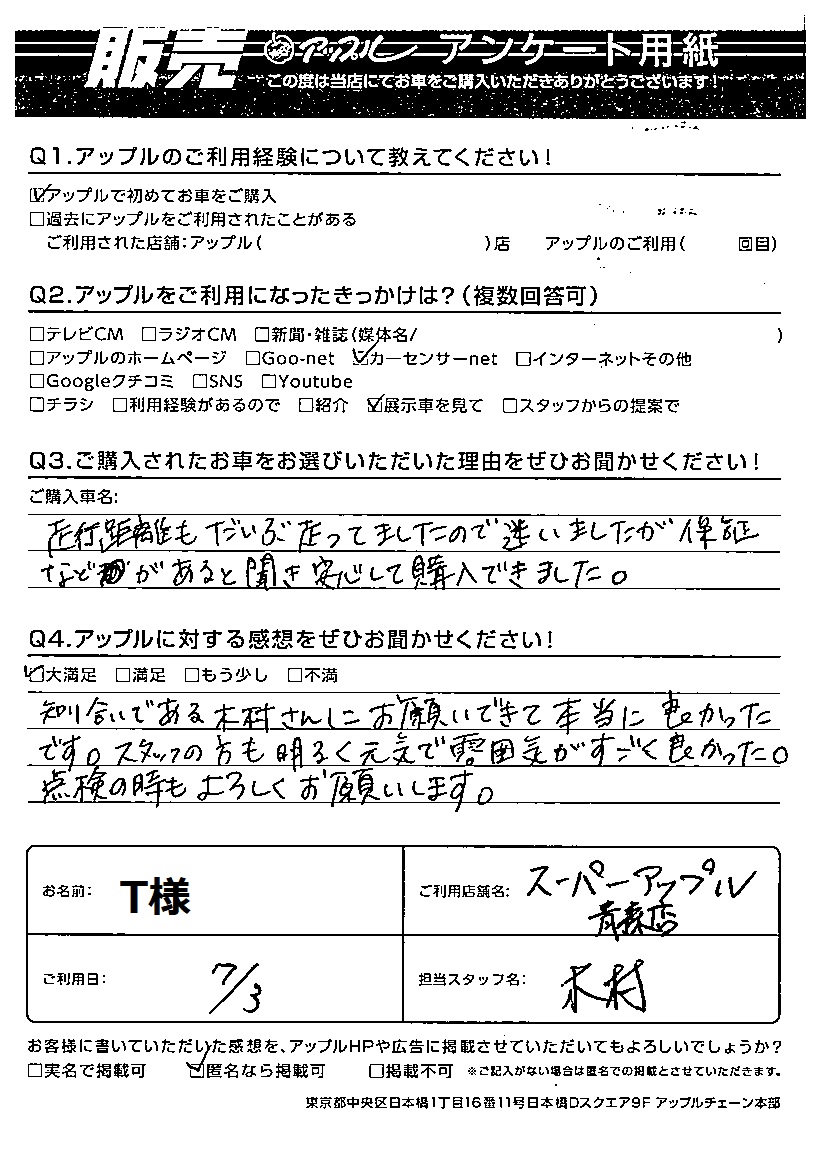 販売 アップル アンケート用紙
この度は当店にてお車をご購入いただきありがとうございます!
Q1.アップルのご利用経験について教えてください!
☑アップルで初めてお車をご購入
□過去にアップルをご利用されたことがある
ご利用された店舗:アップル( )店 アップルのご利用( 回目)
Q2.アップルをご利用になったきっかけは?(複数回答可)
□テレビCM □ラジオCM □新聞・雑誌(媒体名/ )
□アップルのホームページ □Goo-net ☑カーセンサーnet □インターネットその他
□Googleクチコミ □SNS □Youtube
□チラシ □利用経験があるので □紹介 ☑展示車を見て □スタッフからの提案で
Q3.ご購入されたお車をお選びいただいた理由をぜひお聞かせください!
ご購入車名:
走行距離もだいぶ走ってましたので迷いましたが保証
などがあると聞き安心して購入できました。
Q4.アップルに対する感想をぜひお聞かせください!
☑大満足 □満足 □もう少し □不満
知り合いである木村さんにお願いできて本当に良かった
です。スタッフの方も明るく元気で雰囲気がすごく良かった。
点検の時もよろしくお願いします。
お名前: T様 ご利用店舗名: スーパーアップル
青森店
ご利用日: 7/3 担当スタッフ名: 木村
お客様に書いていただいた感想を、アップルHPや広告に掲載させていただいてもよろしいでしょうか?
□実名で掲載可 ☑匿名なら掲載可 □掲載不可 ※ご記入がない場合は匿名での掲載とさせていただきます。
東京都中央区日本橋1丁目16番11号日本橋Dスクエア9F アップルチェーン本部